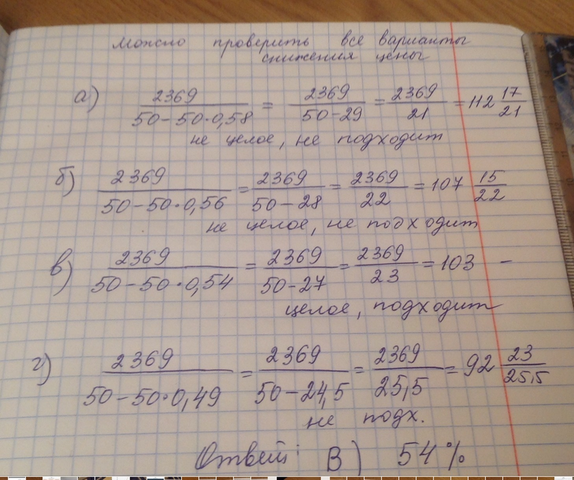 можно проверить все варианты
снижения цены
а) 2369 / (50-50·0,58) = 2369 / (50-29) = 2369 / 21 = 112 17/21
не целое, не подходит
б) 2369 / (50-50·0,56) = 2369 / (50-28) = 2369 / 22 = 107 15/22
не целое, не подходит
в) 2369 / (50-50·0,54) = 2369 / (50-27) = 2369 / 23 = 103 -
целое, подходит
г) 2369 / (50-50·0,49) = 2369 / (50-24,5) = 2369 / 25,5 = 92 23/25,5
не подх.
Ответ: В) 54%